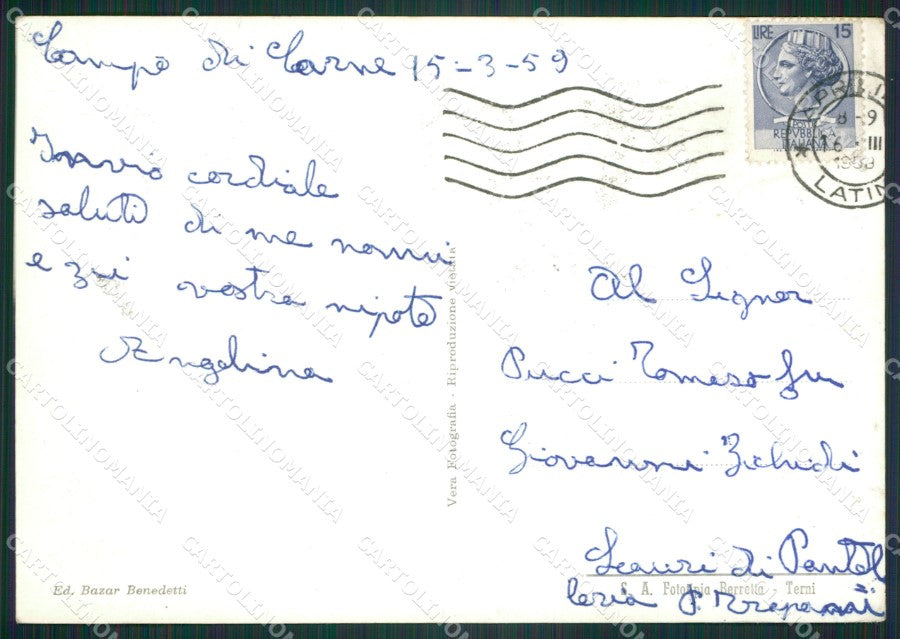 Campo di Carne 15-3-59
Invio cordiale
saluti di me nonni
e zii vostra nipote
Angelina
Vera Fotografia - Riproduzione vietata
LIRE 15
POSTE
REPVBBLICA
ITALIANA
APRILIA
8-9
16 III
1959
LATINA
Al Signor
Pucci Tomaso fu
Giovanni
Scauri di Pantel
leria P. Trapani
Ed. Bazar Benedetti
S. A. Fotocopia Berretta - Terni
CARTOLINOMANIA